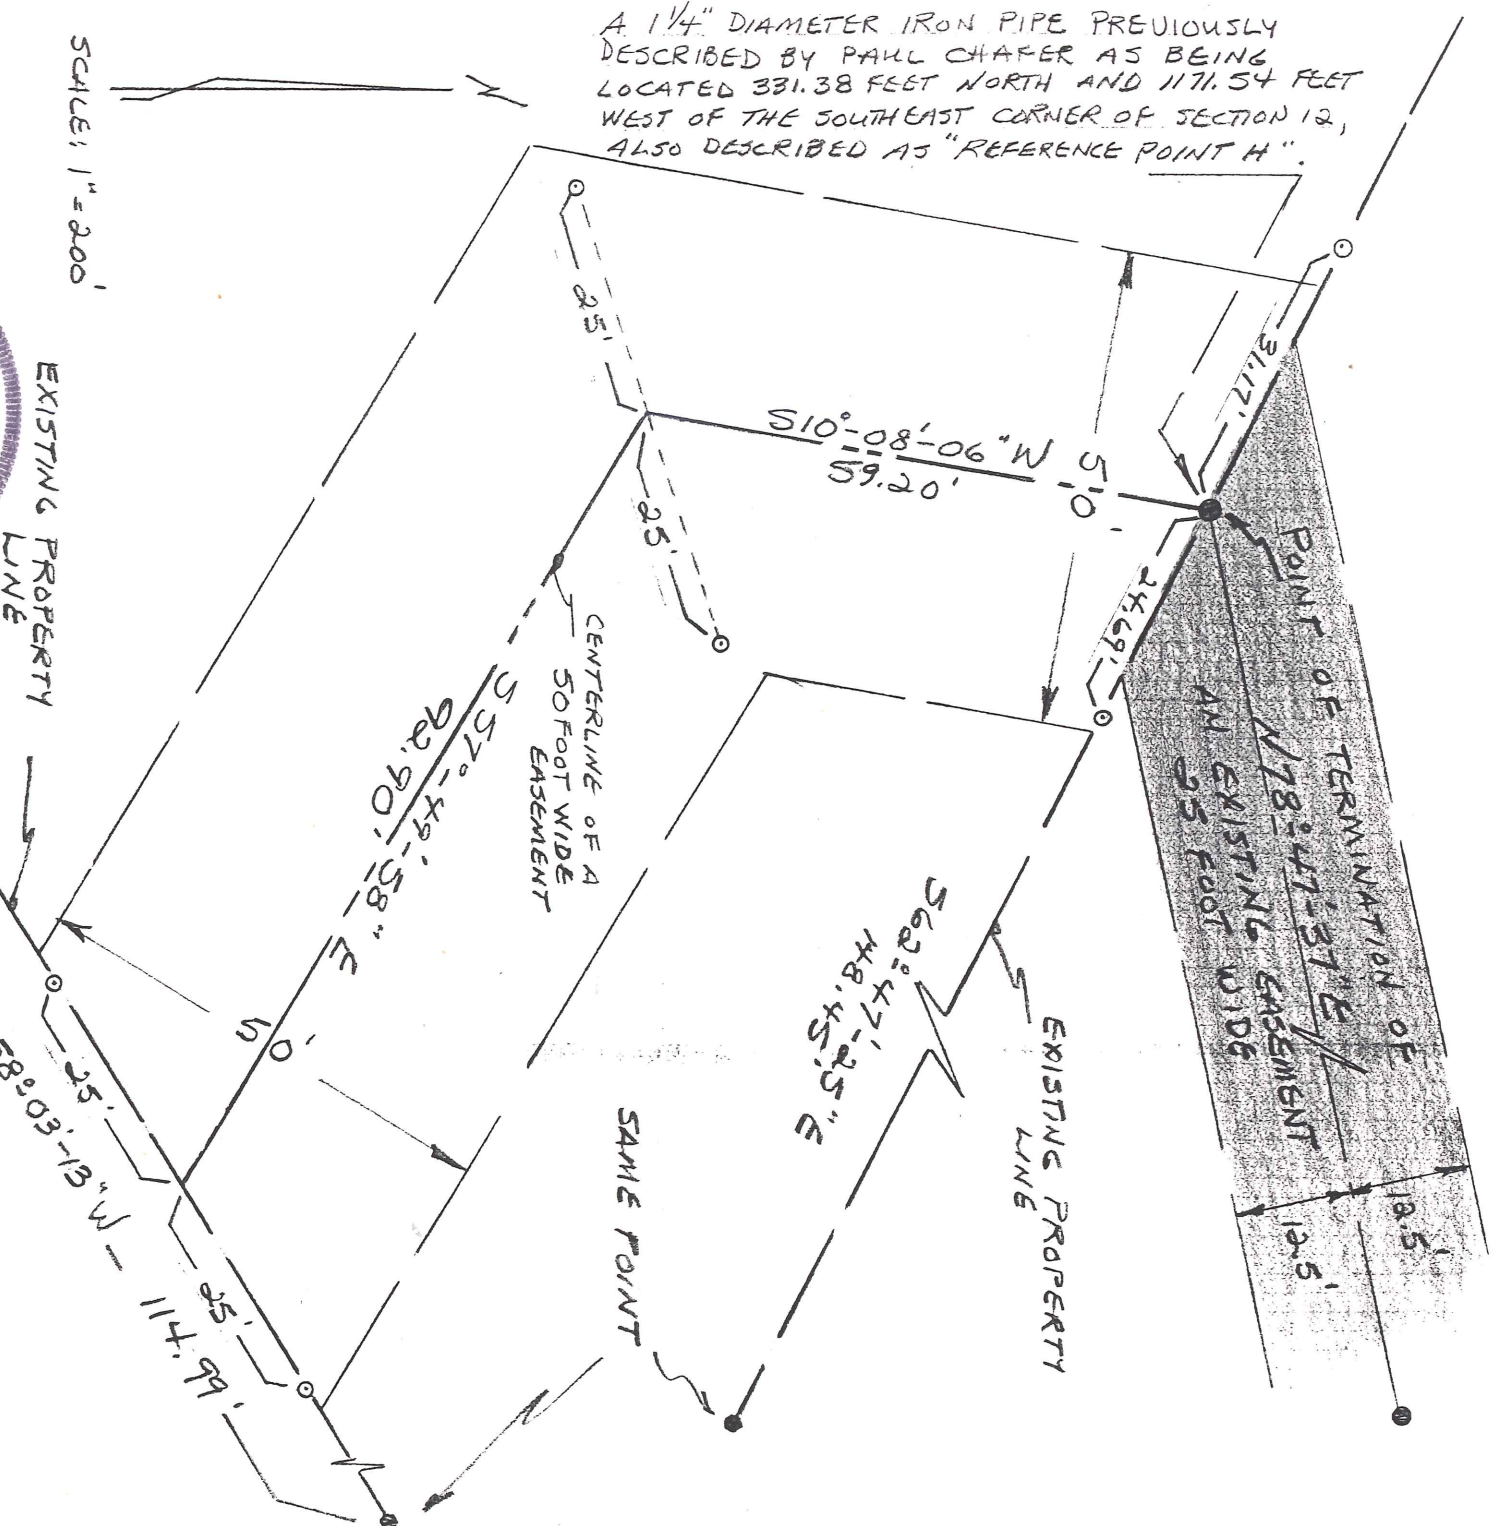 A 1 1/4" DIAMETER IRON PIPE PREVIOUSLY
DESCRIBED BY PAUL CHAFER AS BEING
LOCATED 331.38 FEET NORTH AND 1171.54 FEET
WEST OF THE SOUTHEAST CORNER OF SECTION 12,
ALSO DESCRIBED AS "REFERENCE POINT H".
N
SCALE; 1"=200'
25'
25'
S10°-08'-06"W
59.20'
50'
31.17'
24.69'
POINT OF TERMINATION OF
N78°-47'-37"E
AN EXISTING EASEMENT
25 FOOT WIDE
12.5'
12.5'
CENTERLINE OF A
50 FOOT WIDE
EASEMENT
S57°-49'-58"E
92.90'
S62°-47'-25"E
148.45'
EXISTING PROPERTY
LINE
EXISTING PROPERTY
LINE
50'
25'
25'
58°-03'-13"W - 114.99'
SAME POINT